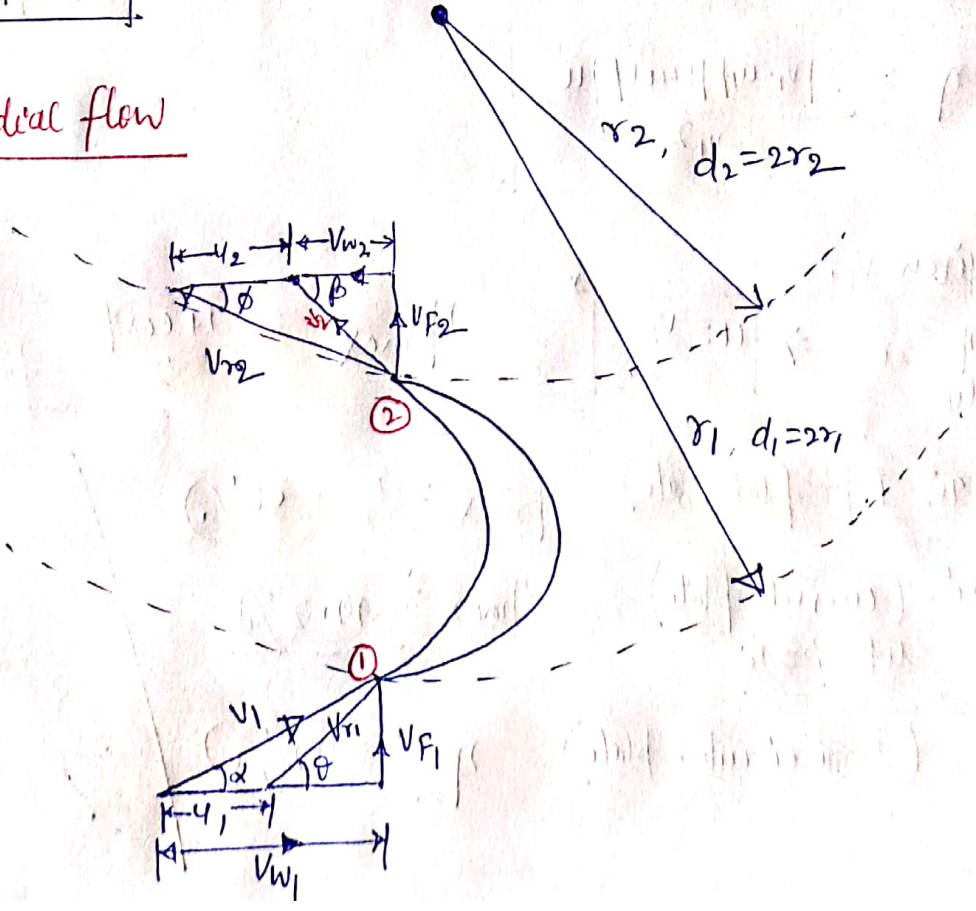 dial flow
r2, d2=2r2
u2 Vw2
ϕ β
VF2
Vr2
②
r1, d1=2r1
①
V1 Vr1 VF1
α θ
u1
Vw1